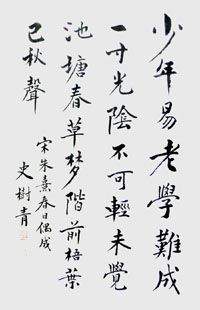 少年易老學難成
一寸光陰不可輕未覺
池塘春草夢階前梧葉
已秋聲
宋朱熹春日偶成
史樹青